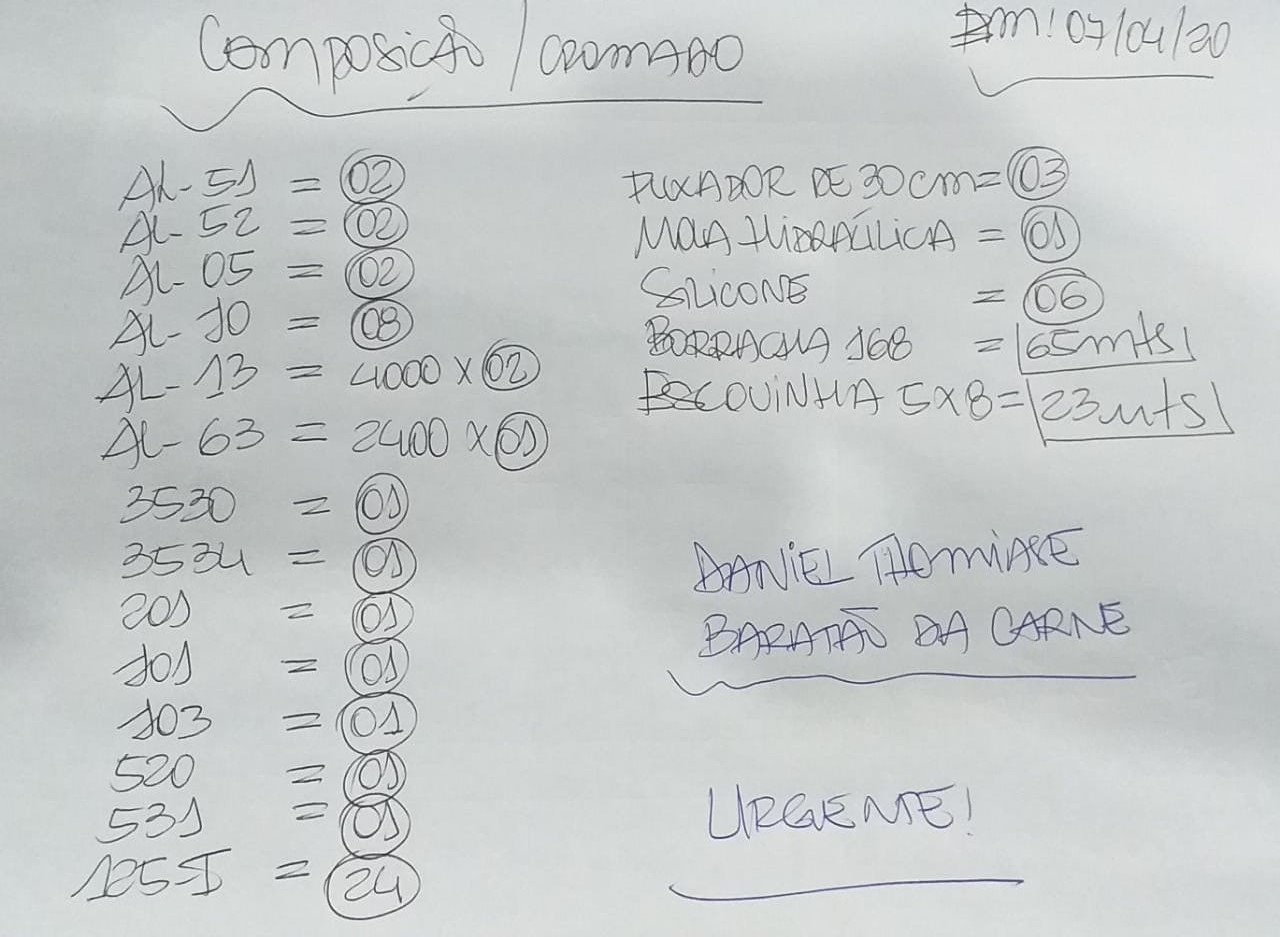 COMPOSIÇÃO / CROMADO
EM: 07/04/20
AL-51 = 02
AL-52 = 02
AL-05 = 02
AL-10 = 08
AL-13 = 4000 X 02
AL-63 = 2400 X 01
3530 = 01
3534 = 01
201 = 01
101 = 01
103 = 01
520 = 01
531 = 01
125-I = 24
PUXADOR DE 30 cm = 03
MOLA HIDRAÚLICA = 01
SILICONE = 06
BORRACHA 168 = 65 mts
ESCOVINHA 5X8 = 23 mts
DANIEL
BARATÃO DA CARNE
URGENTE!